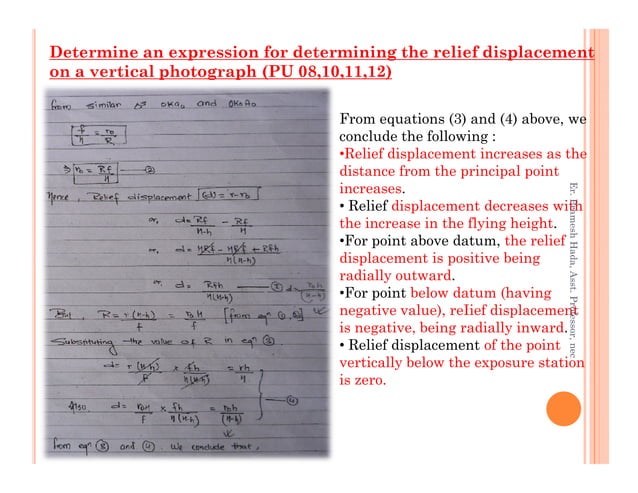 Determine an expression for determining the relief displacement
on a vertical photograph (PU 08,10,11,12)
from similar Δs OKA₀ and OK₀A₀
f/H = r₀/R
⇒ r₀ = Rf/H — ②
Hence, Relief displacement (d) = r - r₀
or, d = Rf/H-h - Rf/H
or, d = HRf - HRf + Rfh / H(H-h)
or d = Rfh / H(H-h) — ③ d = r₀h/(H-h)
But, R = r(H-h)/f = r₀H/f [from eqn ①, ②]
Substituting the value of R in eqn ③.
d = r(H-h)/f × fh/H(H-h) = rh/H
Also. d = r₀H/f × fh/H(H-h) = r₀h/(H-h) — ④
from eqn ③ and ④. We conclude that,
From equations (3) and (4) above, we
conclude the following :
•Relief displacement increases as the
distance from the principal point
increases.
• Relief displacement decreases with
the increase in the flying height.
•For point above datum, the relief
displacement is positive being
radially outward.
•For point below datum (having
negative value), relief displacement
is negative, being radially inward.
• Relief displacement of the point
vertically below the exposure station
is zero.
Hada, Asst. Professor, nec